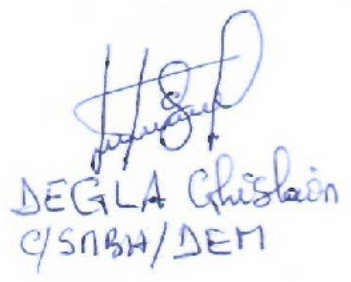 DEGLA Ghislain
C/SMBH/DEM